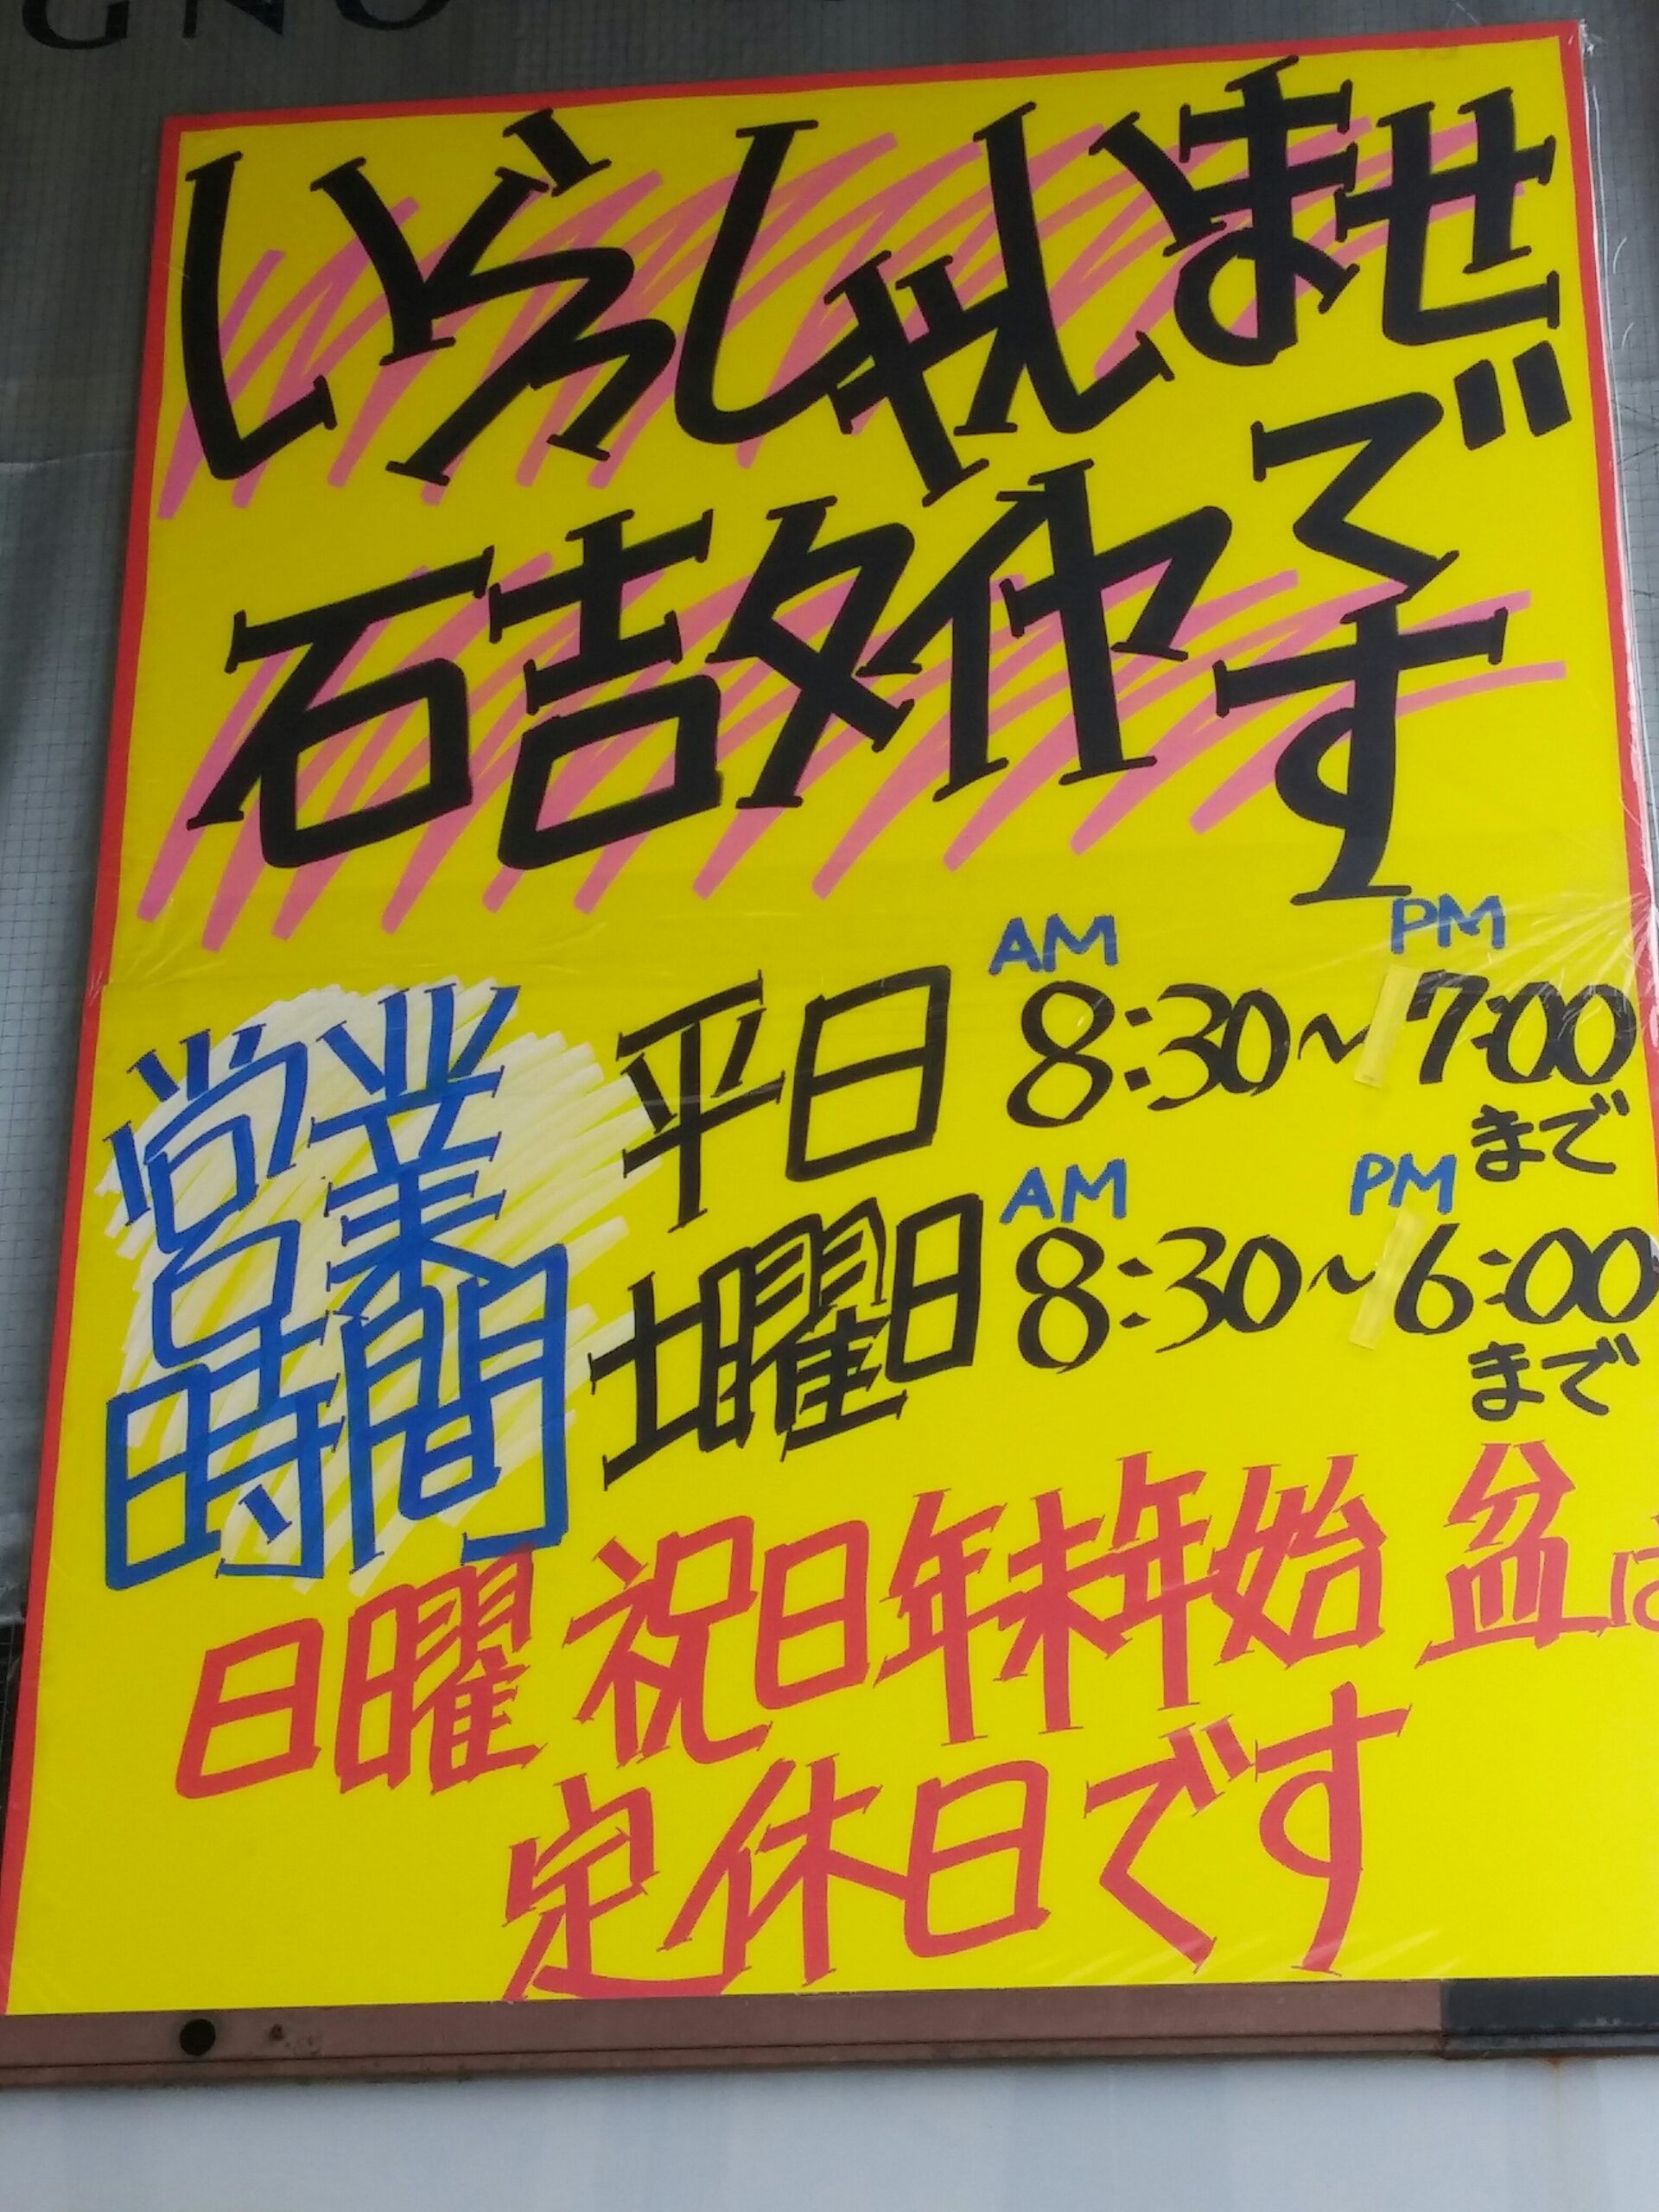 GNO
いらしゃいませ
石吉タイヤです
営業
時間
平日 AM 8:30～PM 7:00まで
土曜日 AM 8:30～PM 6:00まで
日曜 祝日年末年始 盆は
定休日です